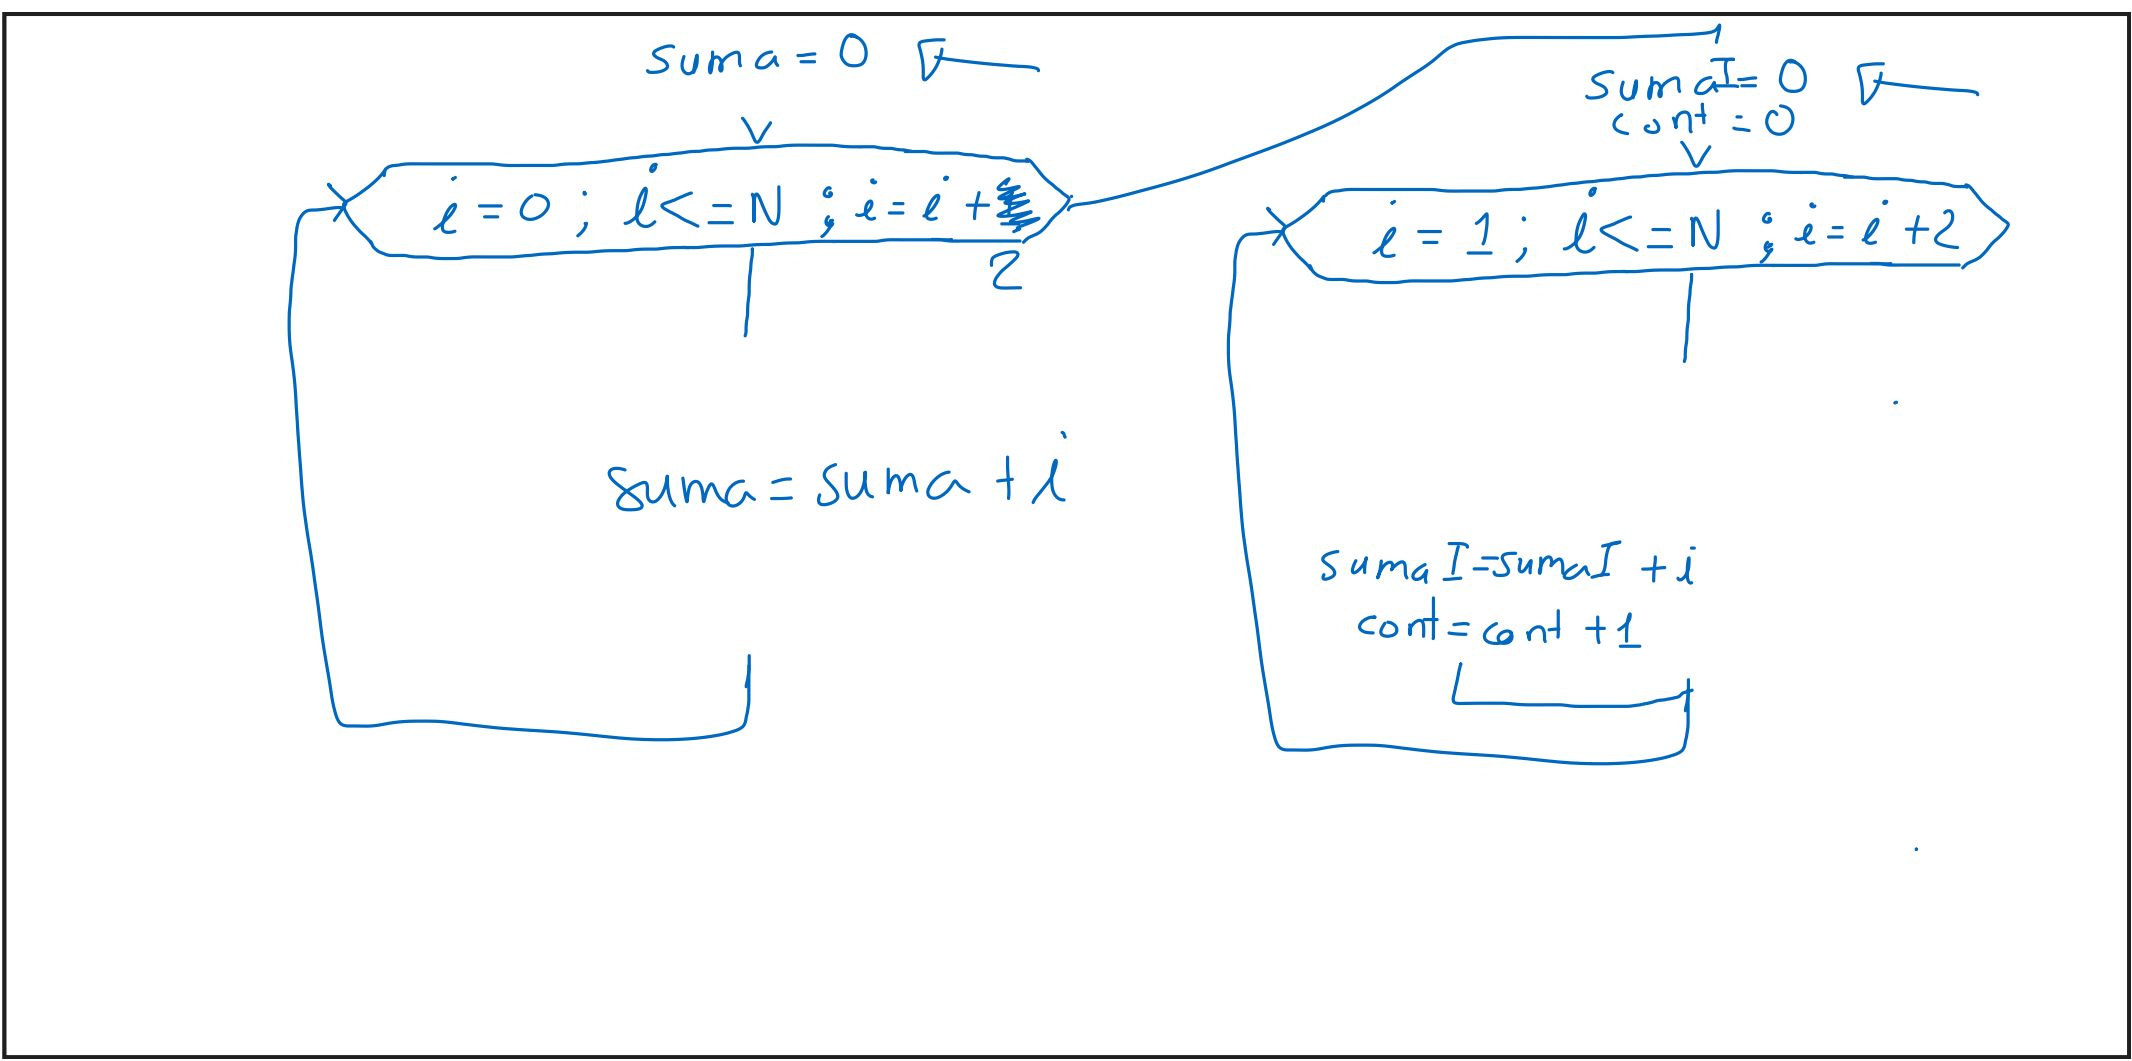 suma = 0
i = 0 ; i <= N ; i = i +
2
suma = suma + i
sumaI = 0
cont = 0
i = 1 ; i <= N ; i = i + 2
sumaI = sumaI + i
cont = cont + 1